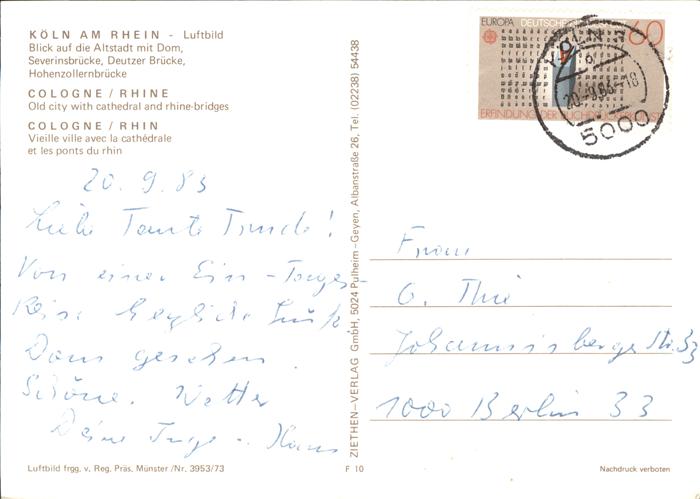 KÖLN AM RHEIN - Luftbild
Blick auf die Altstadt mit Dom,
Severinsbrücke, Deutzer Brücke,
Hohenzollernbrücke
COLOGNE / RHINE
Old city with cathedral and rhine-bridges
COLOGNE / RHIN
Vieille ville avec la cathédrale
et les ponts du rhin
20.9.83
Liebe Tante Trude!
Von einer Ein-Tages-
Reise herzliche Grüße
Dom gesehen.
Schönes Wetter
Deine Inge . Hans
Luftbild frgg. v. Reg. Präs. Münster /Nr. 3953/73
F 10
ZIETHEN-VERLAG GmbH, 5024 Pulheim-Geyen, Albanstraße 26, Tel. (02238) 54438
EUROPA DEUTSCHE
60
ERFINDUNG DER BUCHDRUCK
KÖLN 1
20.-9.83-18
5000
Frau
G.
Johannisberger Str. 33
1000 Berlin 33
Nachdruck verboten